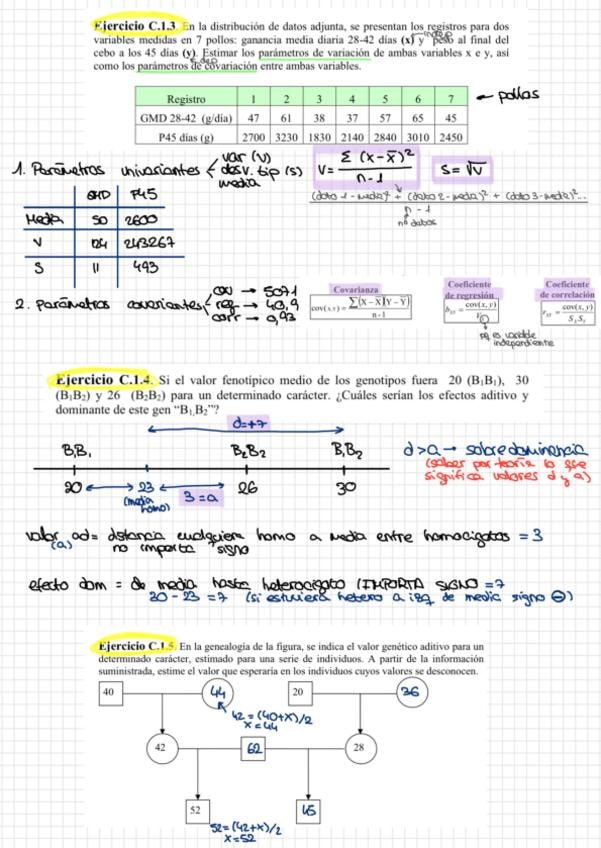 Ejercicio C.1.3. En la distribución de datos adjunta, se presentan los registros para dos
variables medidas en 7 pollos: ganancia media diaria 28-42 días (x) y peso al final del
cebo a los 45 días (y). Estimar los parámetros de variación de ambas variables x e y, así
como los parámetros de covariación entre ambas variables.
Registro 1 2 3 4 5 6 7 ← pollos
GMD 28-42 (g/día) 47 61 38 37 57 65 45
P45 días (g) 2700 3230 1830 2140 2840 3010 2450
1. Parámetros univariantes
var (v)
desv. tip (s)
media
V = Σ (x-x̄)² / n-1
S = √v
(dato 1 - media)² + (dato 2 - media)² + (dato 3 - media)²...
n - 1
nº datos
GMD P45
Media 50 2600
V 124 243267
S 11 493
2. parámetros covariantes
cov → 5071
reg → 40,9
corr → 0,93
Covarianza
cov(x,y) = Σ(X - X̄)(Y - Ȳ) / n-1
Coeficiente
de regresión
cov(x, y)
Coeficiente
de correlación
cov(x, y)
pq es variable
independiente
Ejercicio C.1.4. Si el valor fenotípico medio de los genotipos fuera 20 (B₁B₁), 30
(B₁B₂) y 26 (B₂B₂) para un determinado carácter. ¿Cuáles serían los efectos aditivo y
dominante de este gen "B₁,B₂"?
d=+7
B₁B₁ B₂B₂ B₁B₂
20 23 26 30
(media
homo)
3=a
d>a → sobredominancia
(saber por teoría lo que
significa valores d y a)
valor ad = distancia cualquiera homo a media entre homocigotos = 3
(a) no importa signo
efecto dom = de media hasta heterocigoto (IMPORTA SIGNO) = 7
30 - 23 = 7 (si estuviera hetero a izq de media signo ⊖)
Ejercicio C.1.5. En la genealogía de la figura, se indica el valor genético aditivo para un
determinado carácter, estimado para una serie de individuos. A partir de la información
suministrada, estime el valor que esperaría en los individuos cuyos valores se desconocen.
40 44 20 36
42 = (40+x)/2
x = 44
42 62 28
52 45
52 = (42+x)/2
x = 52